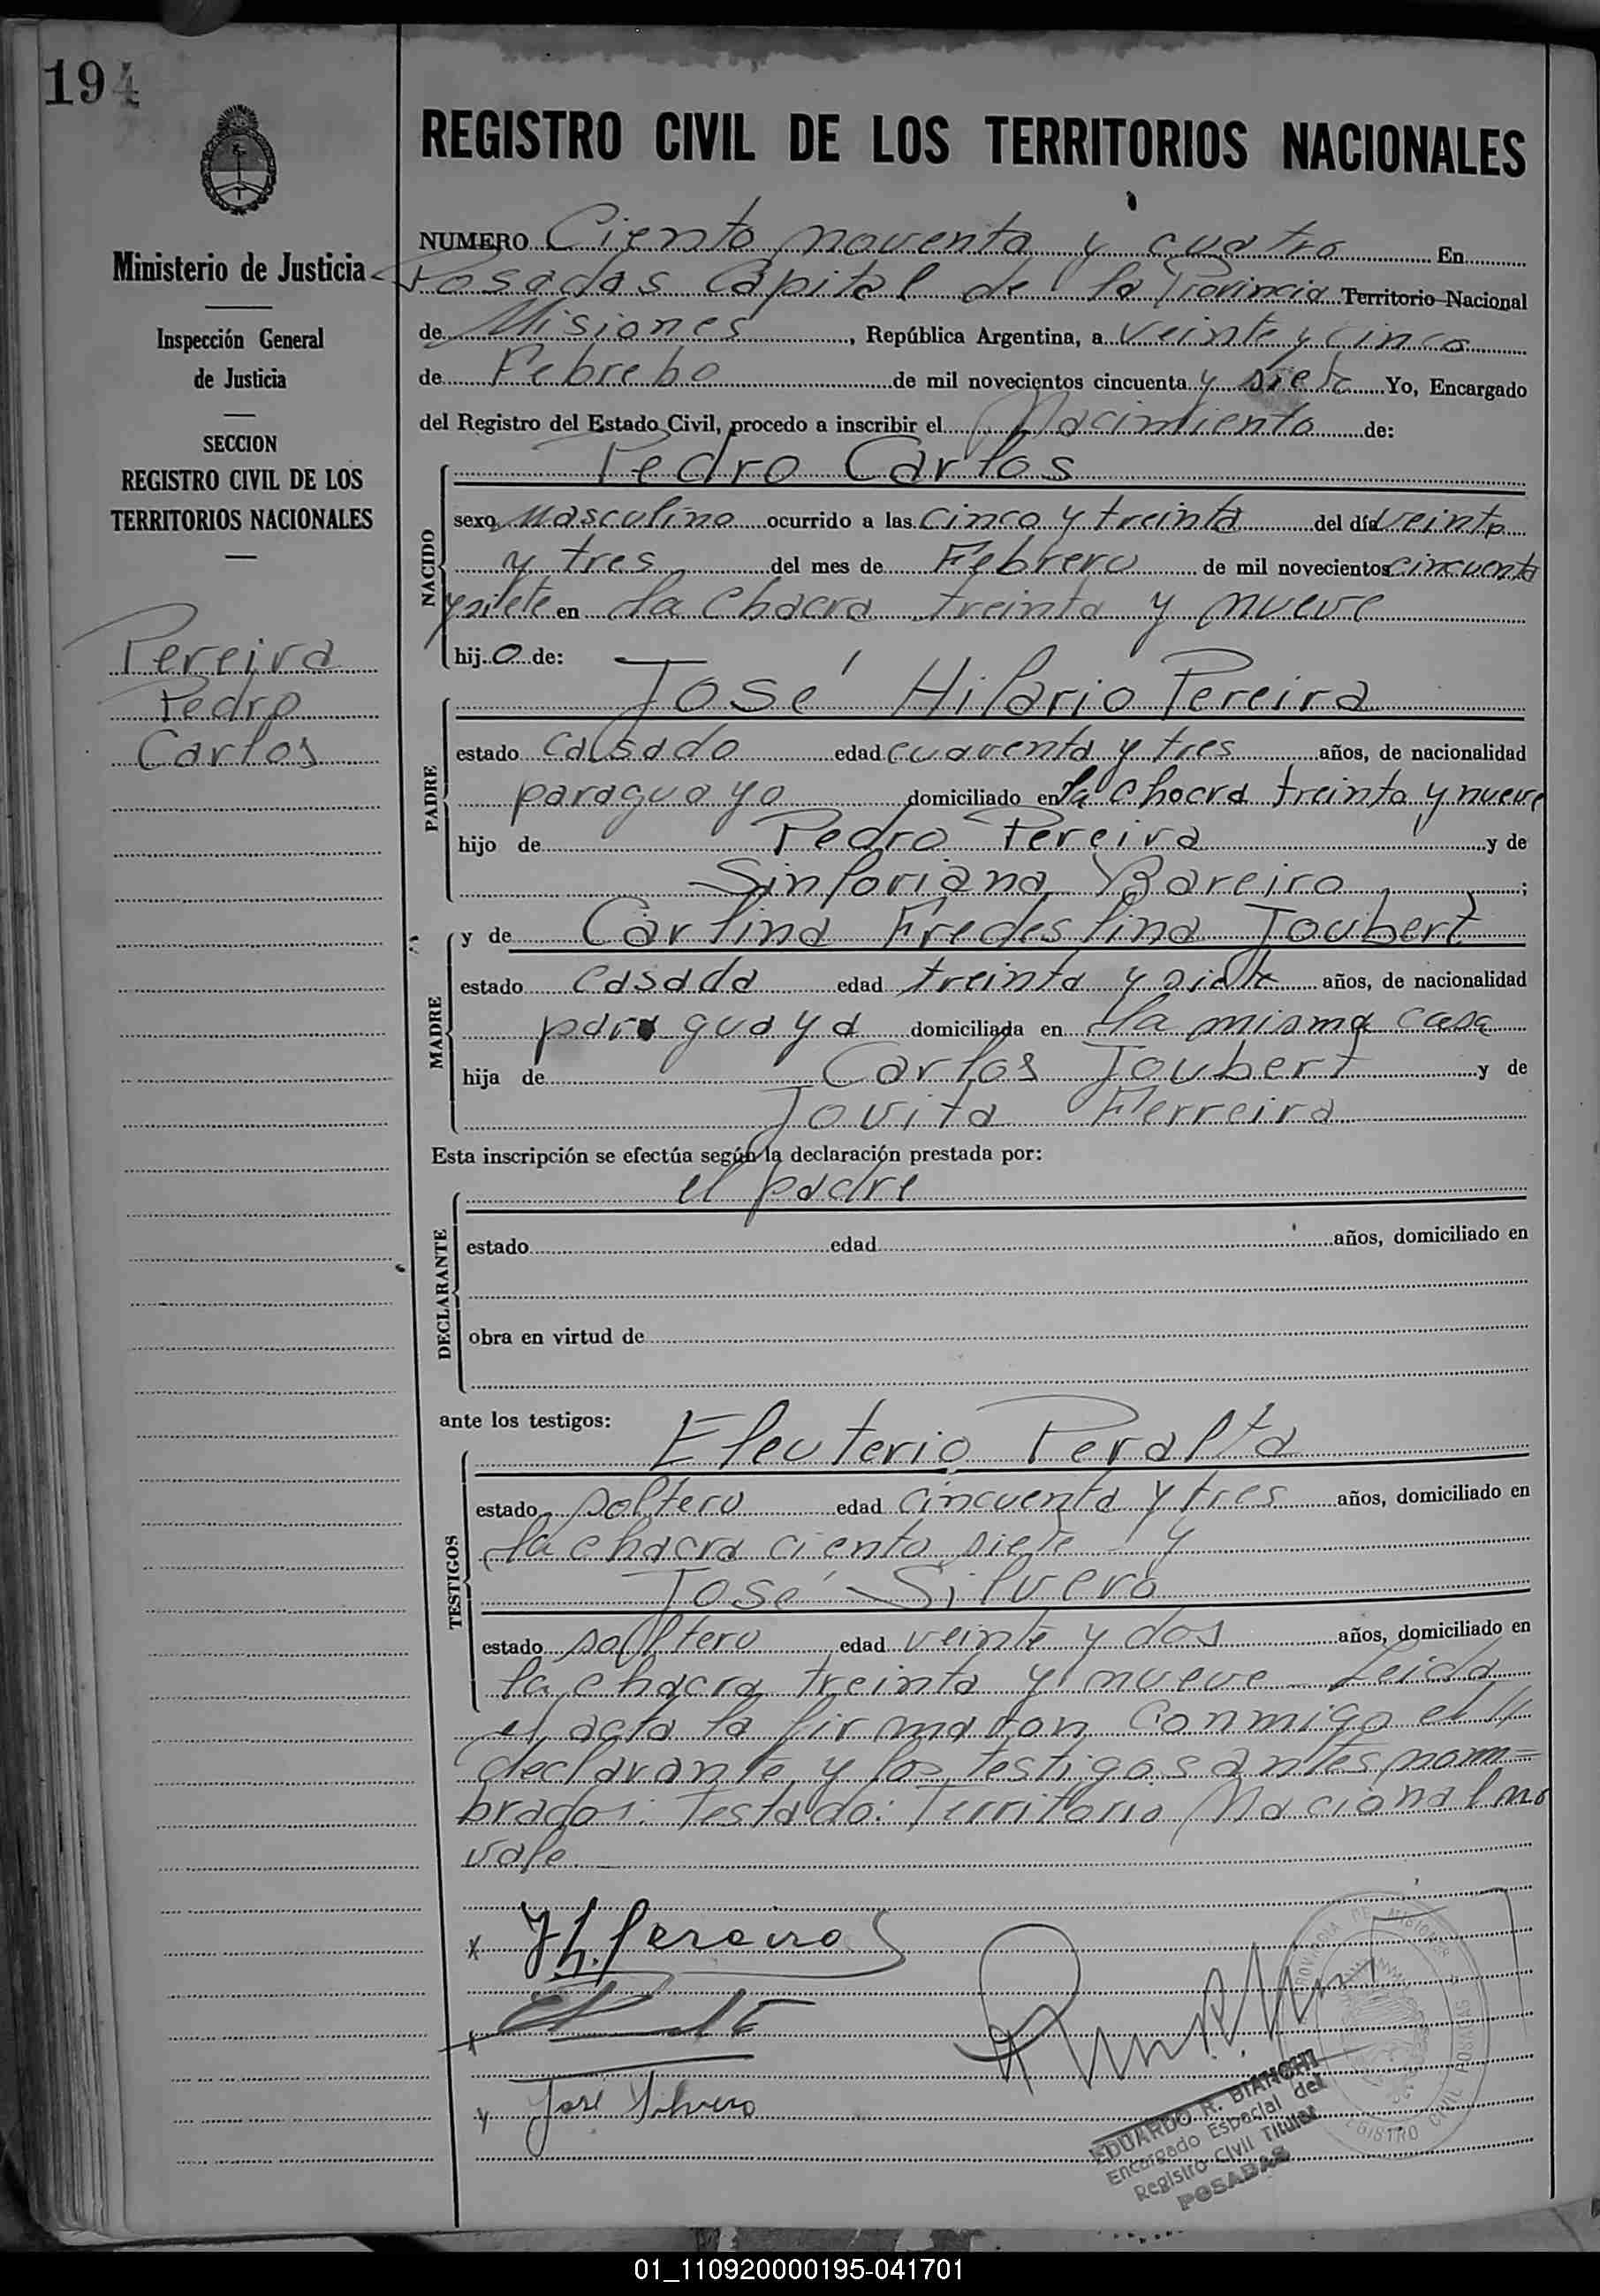 194
REGISTRO CIVIL DE LOS TERRITORIOS NACIONALES
Ministerio de Justicia
Inspección General
de Justicia
SECCION
REGISTRO CIVIL DE LOS
TERRITORIOS NACIONALES
Pereira
Pedro
Carlos
NUMERO Ciento noventa y cuatro En
Posadas Capital de la Provincia Territorio Nacional
de Misiones, República Argentina, a veinte y cinco
de Febrebo de mil novecientos cincuenta y siete Yo, Encargado
del Registro del Estado Civil, procedo a inscribir el Nacimiento de:
NACIDO
Pedro Carlos
sexo Masculino ocurrido a las cinco y treinta del día veinte
y tres del mes de Febrero de mil novecientos cincuenta
y siete en la chacra treinta y nueve
hijo de:
PADRE
José Hilario Pereira
estado casado edad cuarenta y tres años, de nacionalidad
paraguayo domiciliado en la chacra treinta y nueve
hijo de Pedro Pereira y de
Sinforiana Bareiro;
MADRE
y de Carlina Fredeslina Joubert
estado casada edad treinta y siete años, de nacionalidad
paraguaya domiciliada en la misma casa
hija de Carlos Joubert y de
Jovita Ferreira
Esta inscripción se efectúa según la declaración prestada por:
DECLARANTE
el padre
estado edad años, domiciliado en
obra en virtud de
ante los testigos:
TESTIGOS
Eleuterio Peralta
estado soltero edad cincuenta y tres años, domiciliado en
la chacra ciento siete y
José Silvero
estado solltero edad veinte y dos años, domiciliado en
la chacra treinta y nueve Leida
el acta la firmaron conmigo el
declarante y los testigos antes nom=
brados: Testado: Territorio Nacional no
vale.
x J H. Pereira
x
x José Silvero
PROVINCIA DE MISIONES
REGISTRO CIVIL POSADAS
EDUARDO R. BIANCHI
Encargado Especial del
Registro Civil Titular
POSADAS
01_110920000195-041701